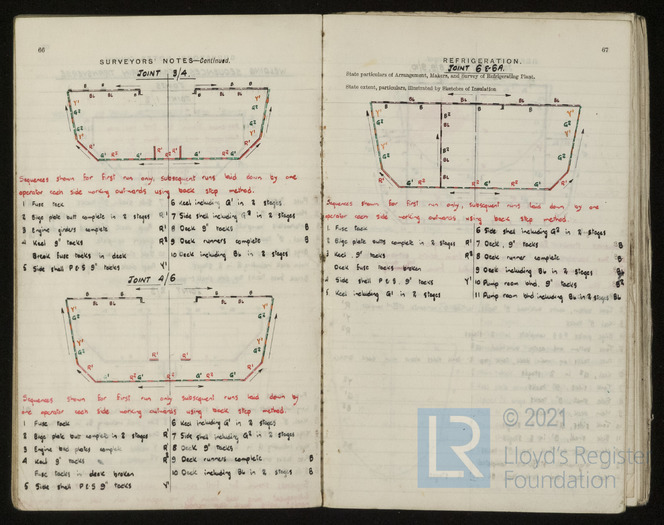 66
SURVEYORS' NOTES—Continued.
JOINT 3/4.
Sequences shown for first run only, subsequent runs laid down by one
operator each side working outwards using back step method.
1 Fuse tack
2 Bilge plate butt complete in 2 stages R'
3 Engine girders complete R'
4 Keel 9" tacks R²
Break fuse tacks in deck
5 Side shell P & S 9" tacks Y'
6 Keel including G' in 2 stages
7 Side shell including G² in 2 stages
8 Deck 9" tacks B
9 Deck runners complete B
10 Deck including BL in 2 stages
JOINT 4/6
Sequences shown for first run only subsequent runs laid down by
one operator each side working outwards using back step method.
1 Fuse tack
2 Bilge plate butt complete in 2 stages R'
3 Engine bed plates complete R'
4 Keel 9" tacks R²
Fuse tacks in deck broken
5 Side shell P & S 9" tacks Y'
6 Keel including G' in 2 stages
7 Side shell including G² in 2 stages
8 Deck 9" tacks
9 Deck runners complete B
10 Deck including BL in 2 stages B
67
REFRIGERATION.
JOINT 6 & 6A.
State particulars of Arrangement, Makers, and Survey of Refrigerating Plant.
State extent, particulars, illustrated by Sketches of Insulation
Sequences shown for first run only, subsequent runs laid down by one
operator each side working outwards using back step method.
1 Fuse tack
2 Bilge plate butts complete in 2 stages R'
3 Keel 9" tacks R²
Deck fuse tacks broken
4 Side shell P & S. 9" tacks Y'
5 Keel including G' in 2 stages
6 Side shell including G² in 2 stages
7 Deck 9" tacks B
8 Deck runner complete B
9 Deck including BL in 2 stages BL
10 Pump room bhd. 9" tacks B²
11 Pump room bhd including BL in 2 stages BL
LR
© 2021
Lloyd's Register
Foundation